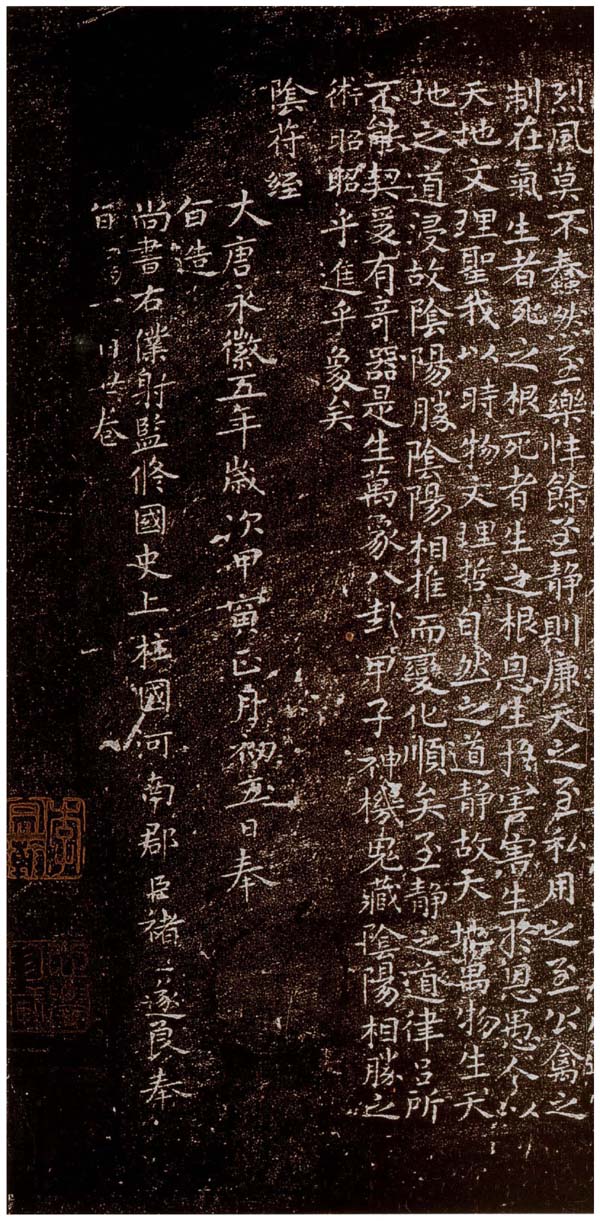 烈風莫不蠢然至樂性餘至靜則廉天之至私用之至公禽之
制在氣生者死之根死者生之根恩生於害害生於恩愚以
天地文理聖我以時物文理哲自然之道靜故天地萬物生天
地之道浸故陰陽勝陰陽相推而變化順矣至靜之道律呂所
不能契爰有奇器是生萬象八卦甲子神機鬼藏陰陽相勝之
術昭昭乎進乎象矣
陰符經
大唐永徽五年歲次甲寅正月初五日奉
旨造
尚書右僕射監脩國史上柱國河南郡臣褚遂良奉
旨一廿卷